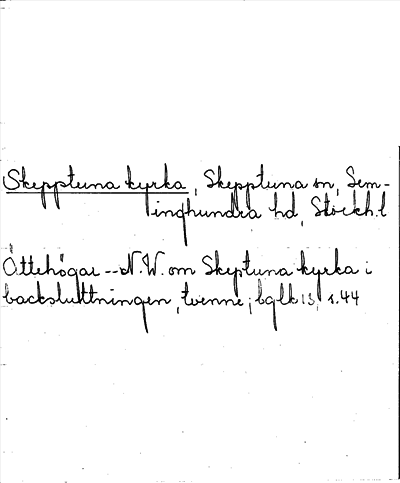 Skepptuna kyrka, Skepptuna sn, Sem-
inghundra hd, Stockh.l
Ättehögar -- N.W. om Skeptuna kyrka i
backsluttningen, tvenne; bglk 13, s. 44